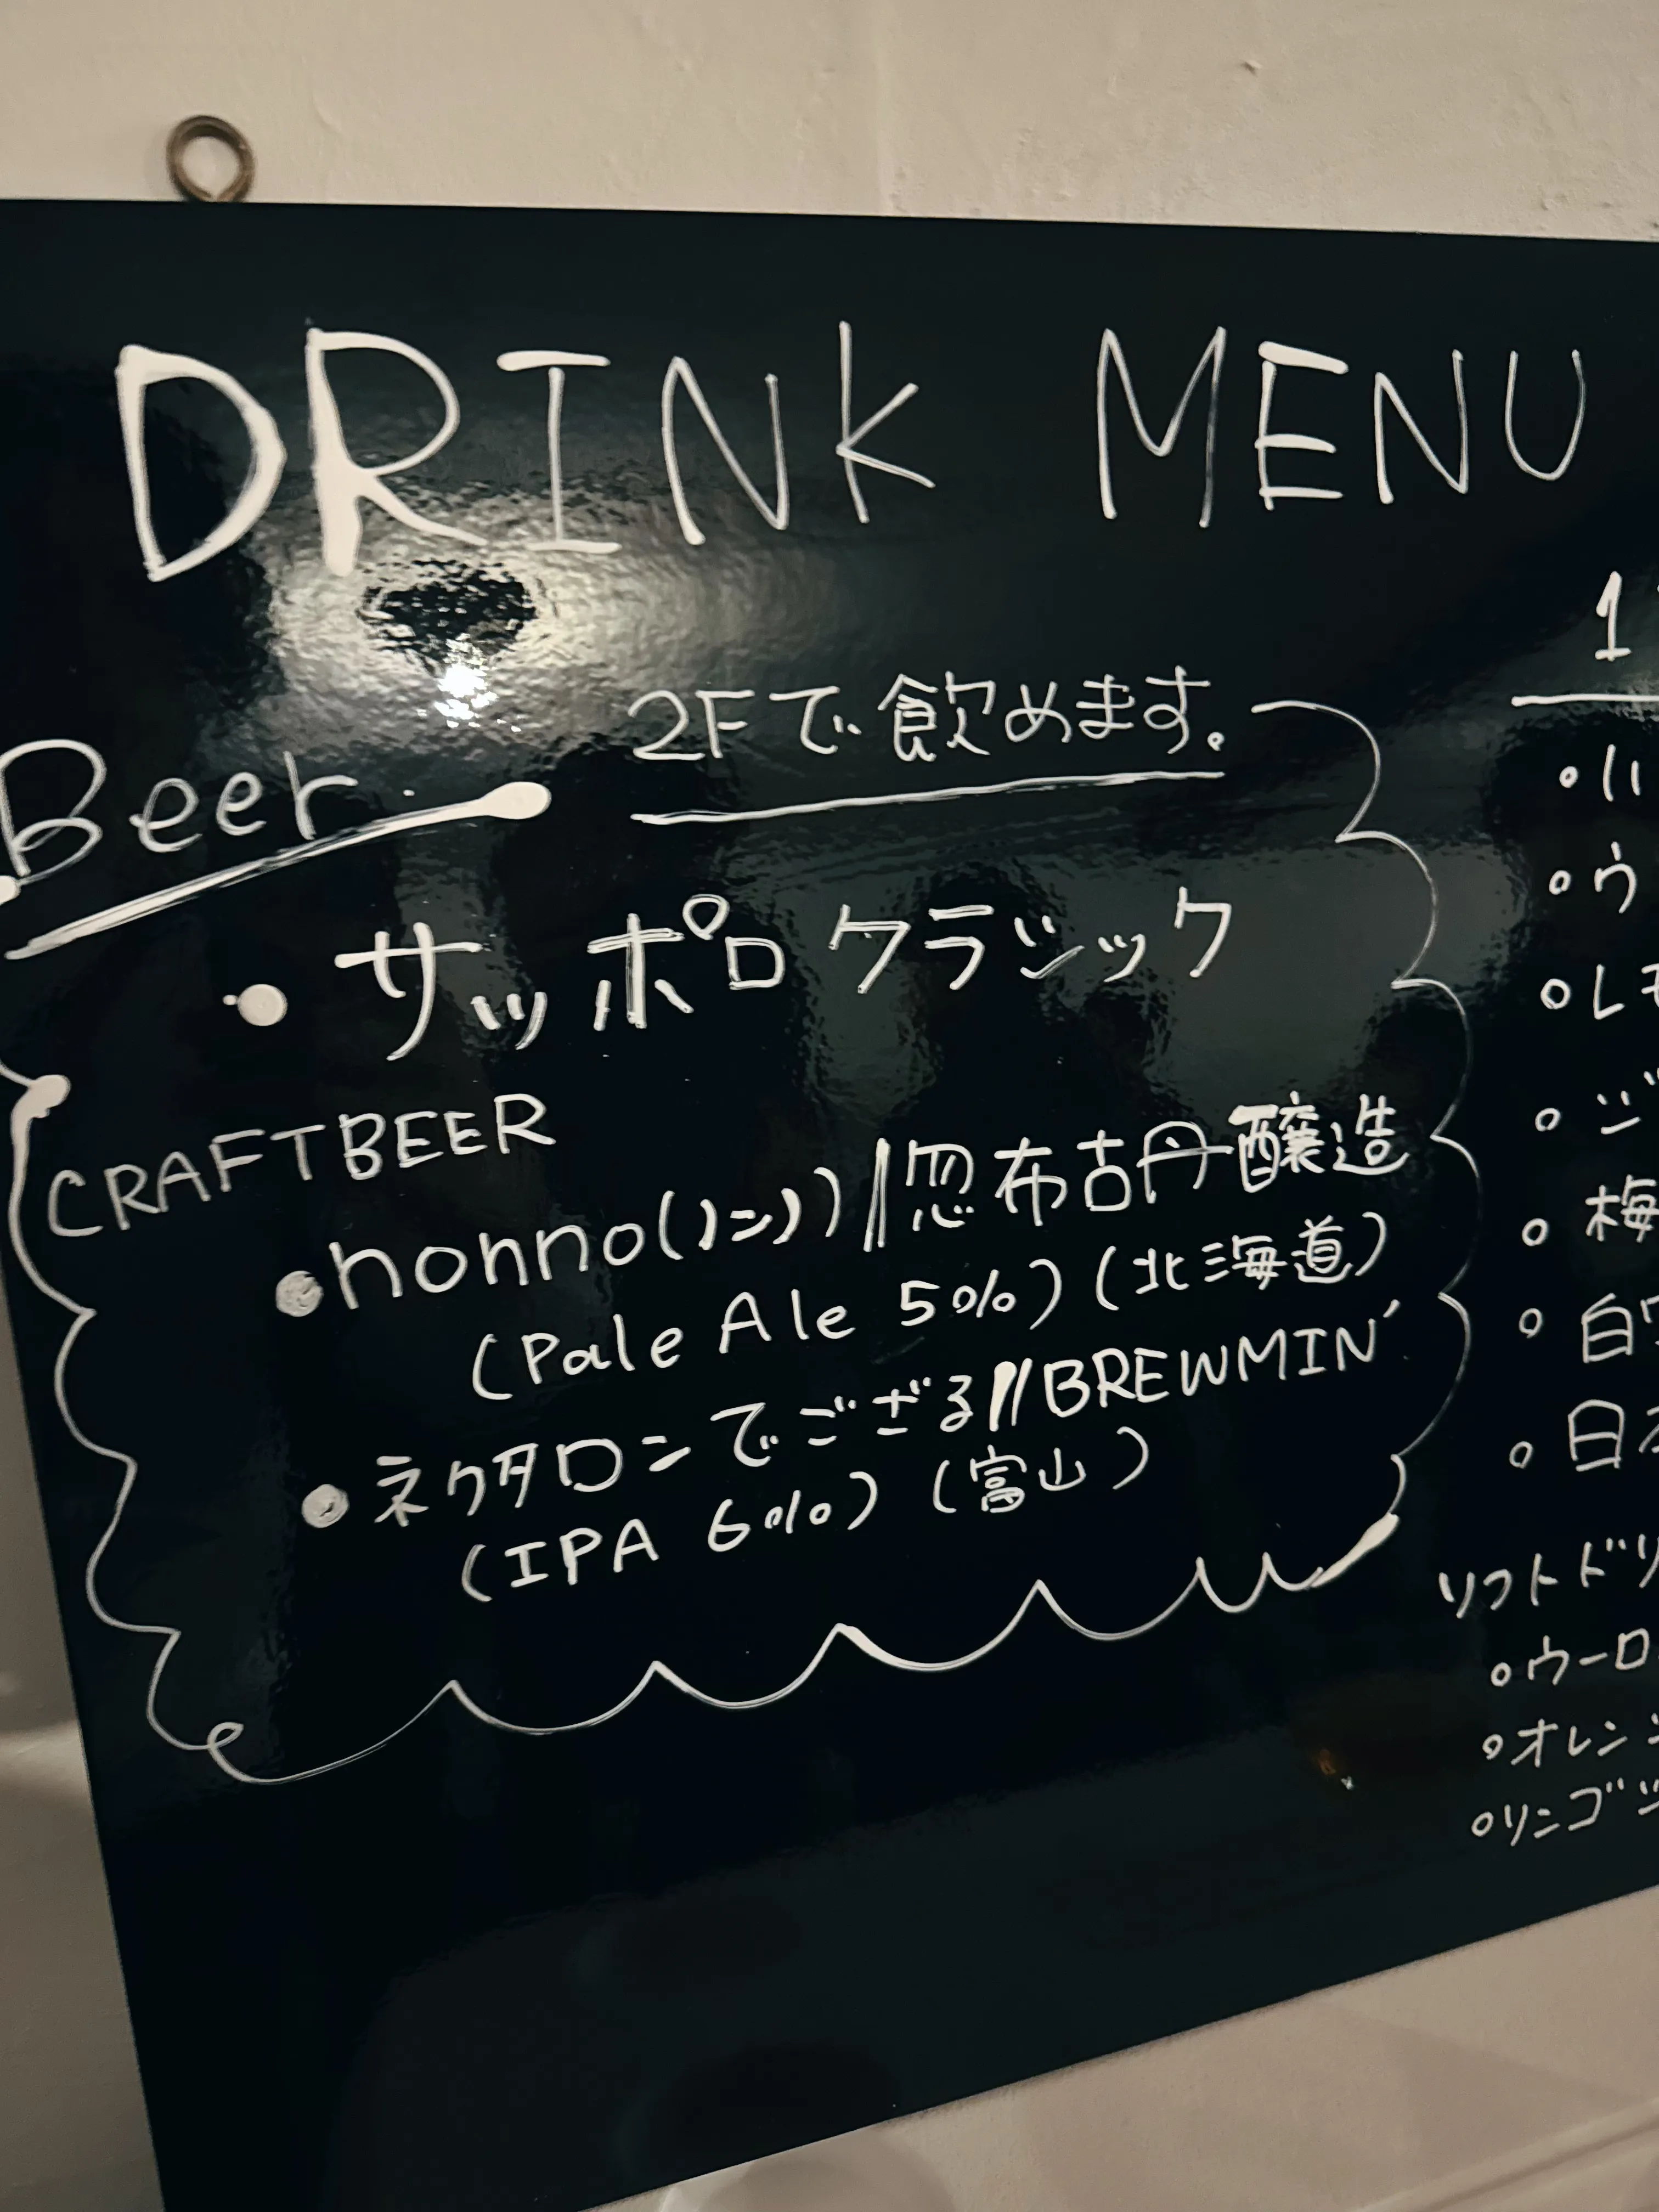 DRINK MENU
Beer
2Fで飲めます。
・サッポロクラシック
CRAFTBEER
●nonno(ノンノ)//忽布古丹醸造
(Pale Ale 5%)(北海道)
●ネクタロンでござる//BREWMIN'
(IPA 6%)(富山)
1
○ハ
○ウ
○レモ
○ジ
○梅
○白ワ
○日本
ソフトドリ
○ウーロ
○オレンジ
○リンゴジ